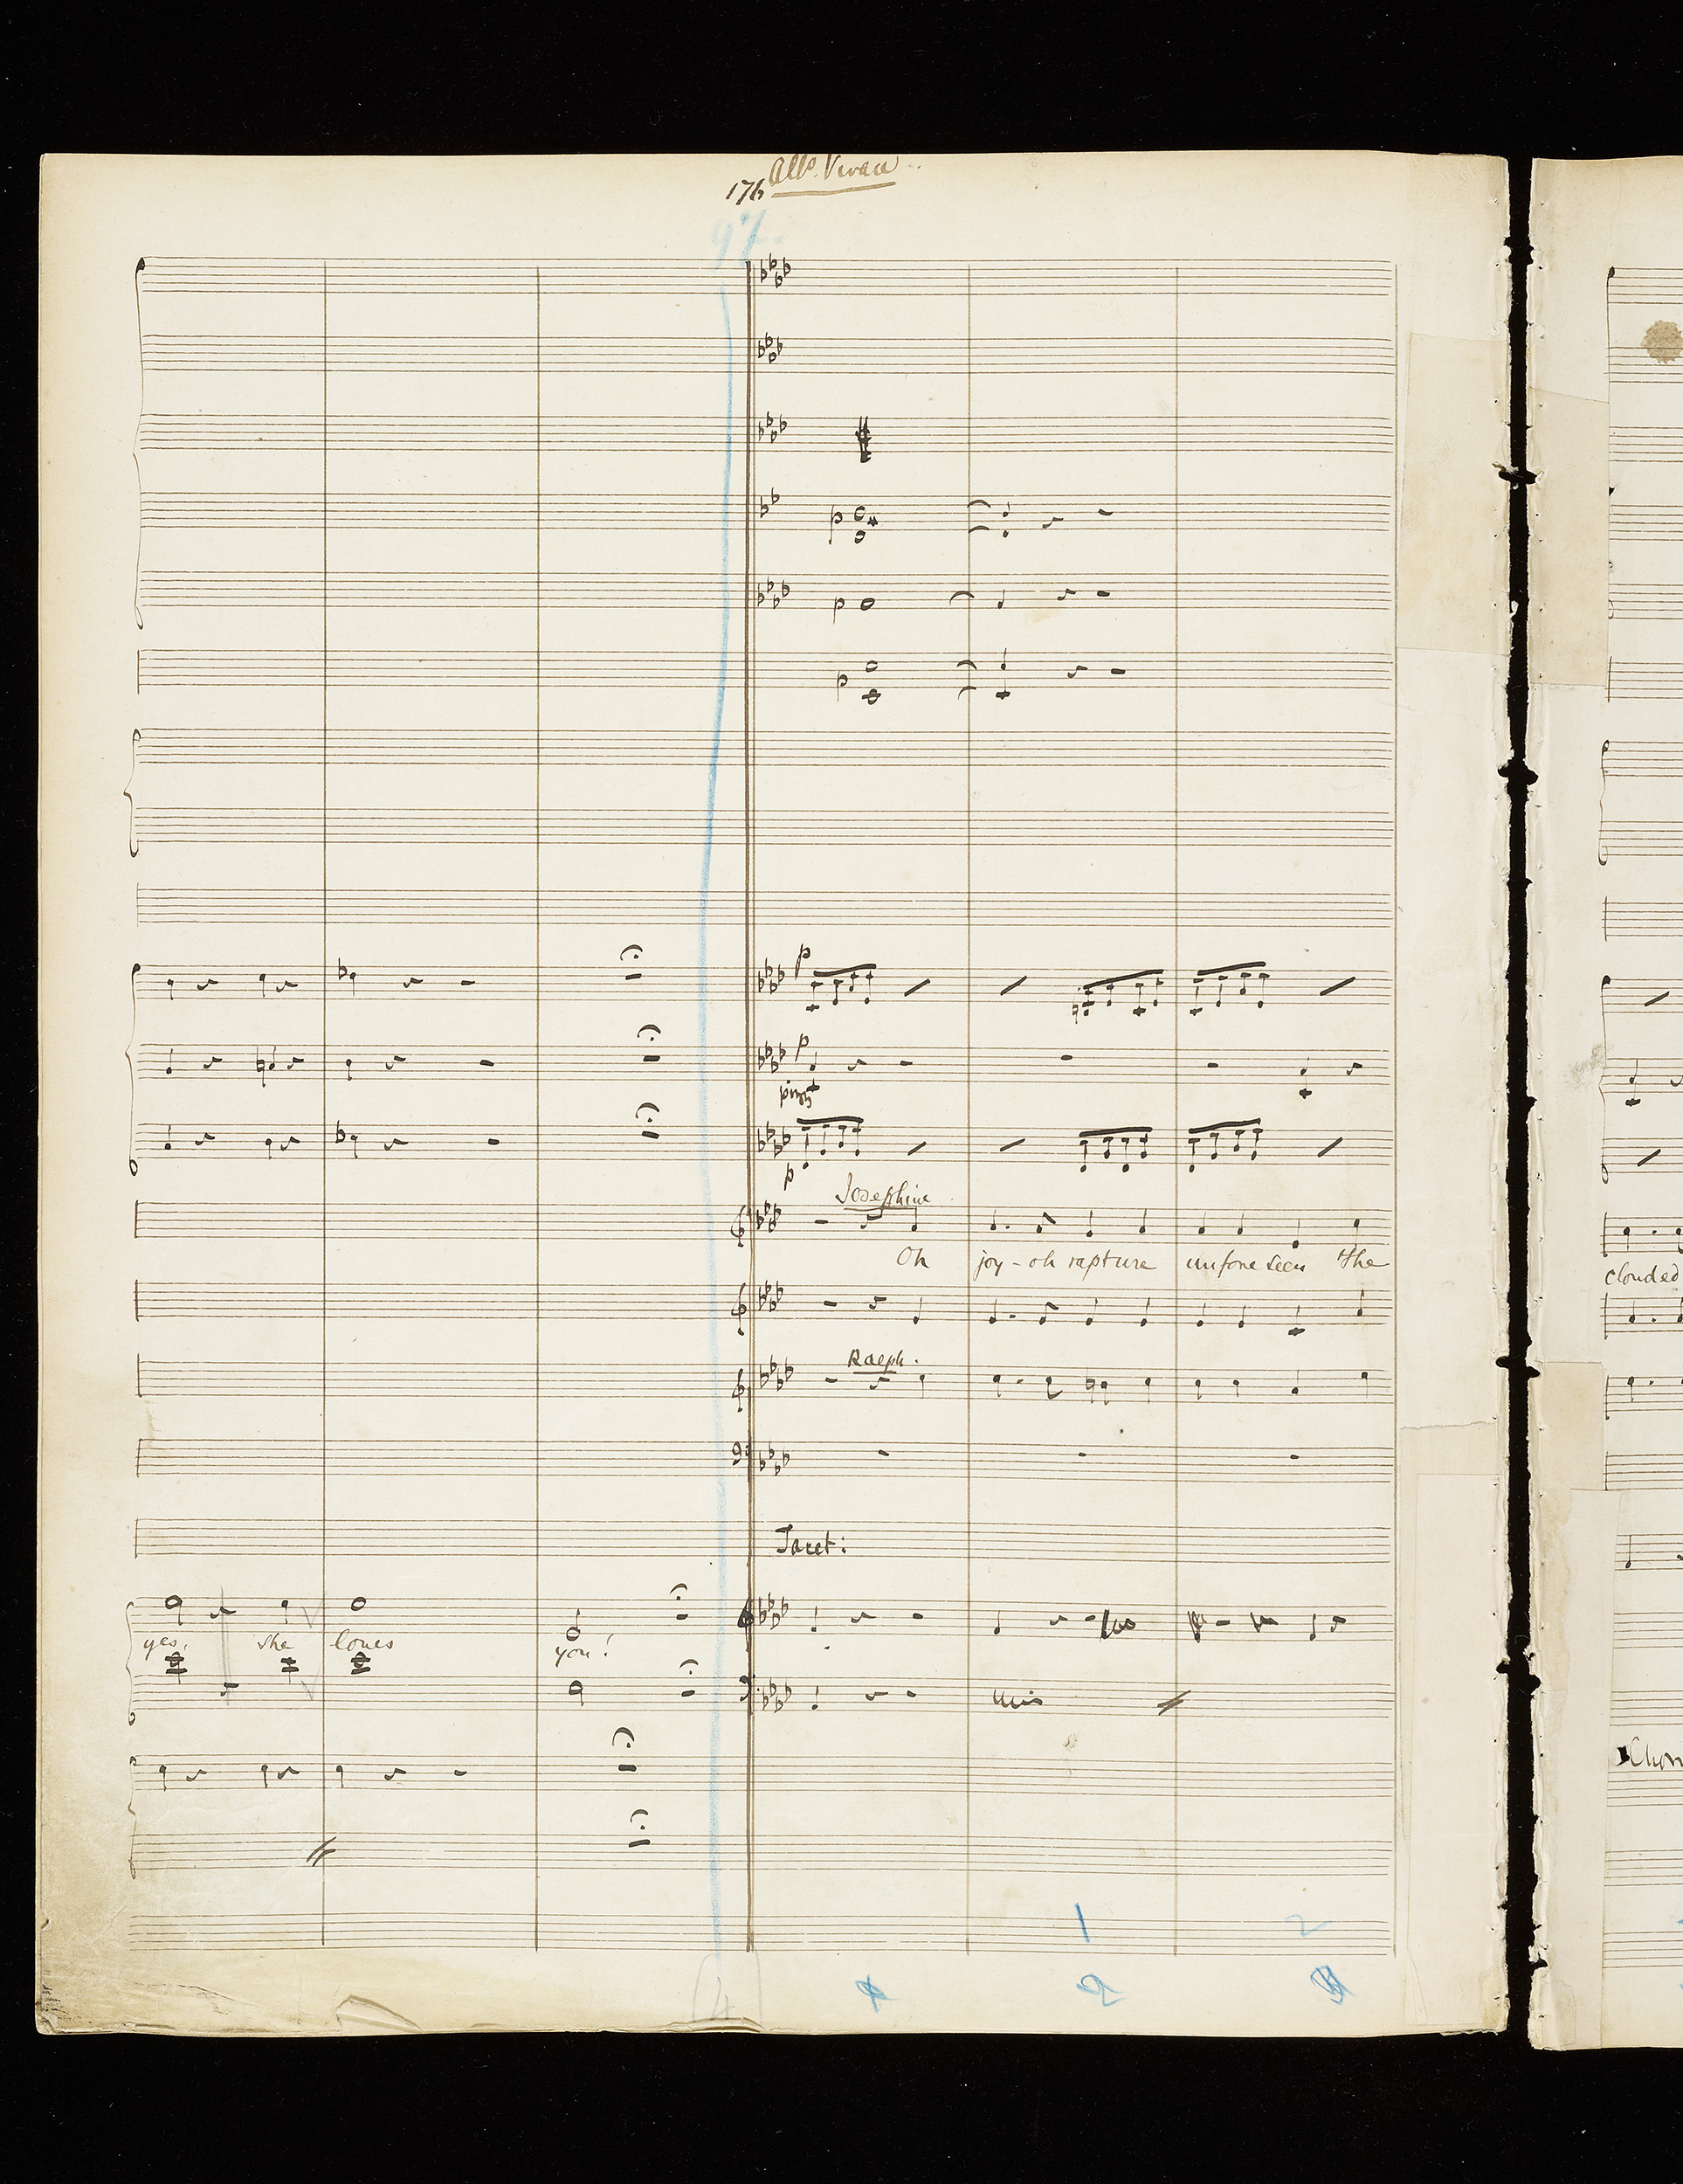 176 Allo. Vivace
97.
p
p
p
p
p
pizz
p
Josephine
Oh joy - oh rapture unforeseen The
clouded
Ralph.
Tacet:
yes, she loves you!
unis
Chor
1 2
2